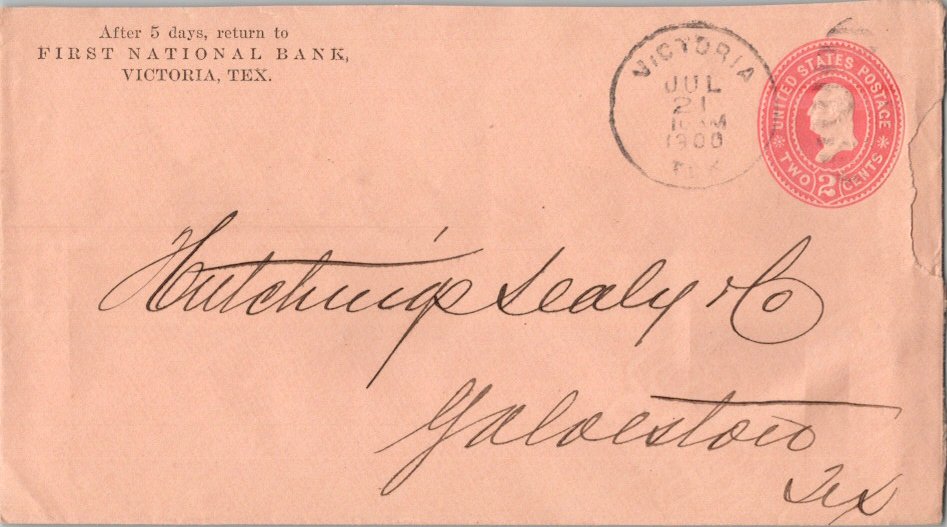 After 5 days, return to
FIRST NATIONAL BANK,
VICTORIA, TEX.
VICTORIA
JUL
21
1900
TEX
UNITED STATES POSTAGE
TWO 2 CENTS
Hutchings Sealy & Co
Galveston
Tex